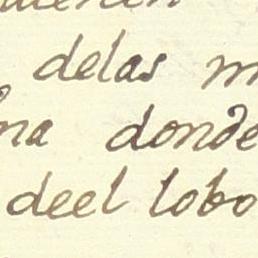 delas
na donde
deel lobo